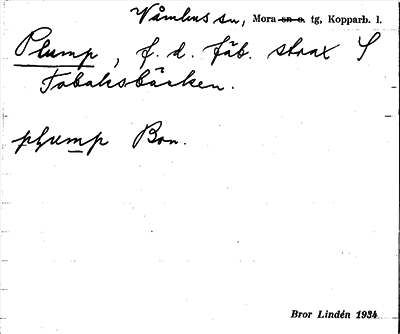 Våmhus sn, Mora sn o. tg, Kopparb. l.
Plump, f. d. fäb. strax S
Tobaksbäcken.
plump Bon.
Bror Lindén 1934